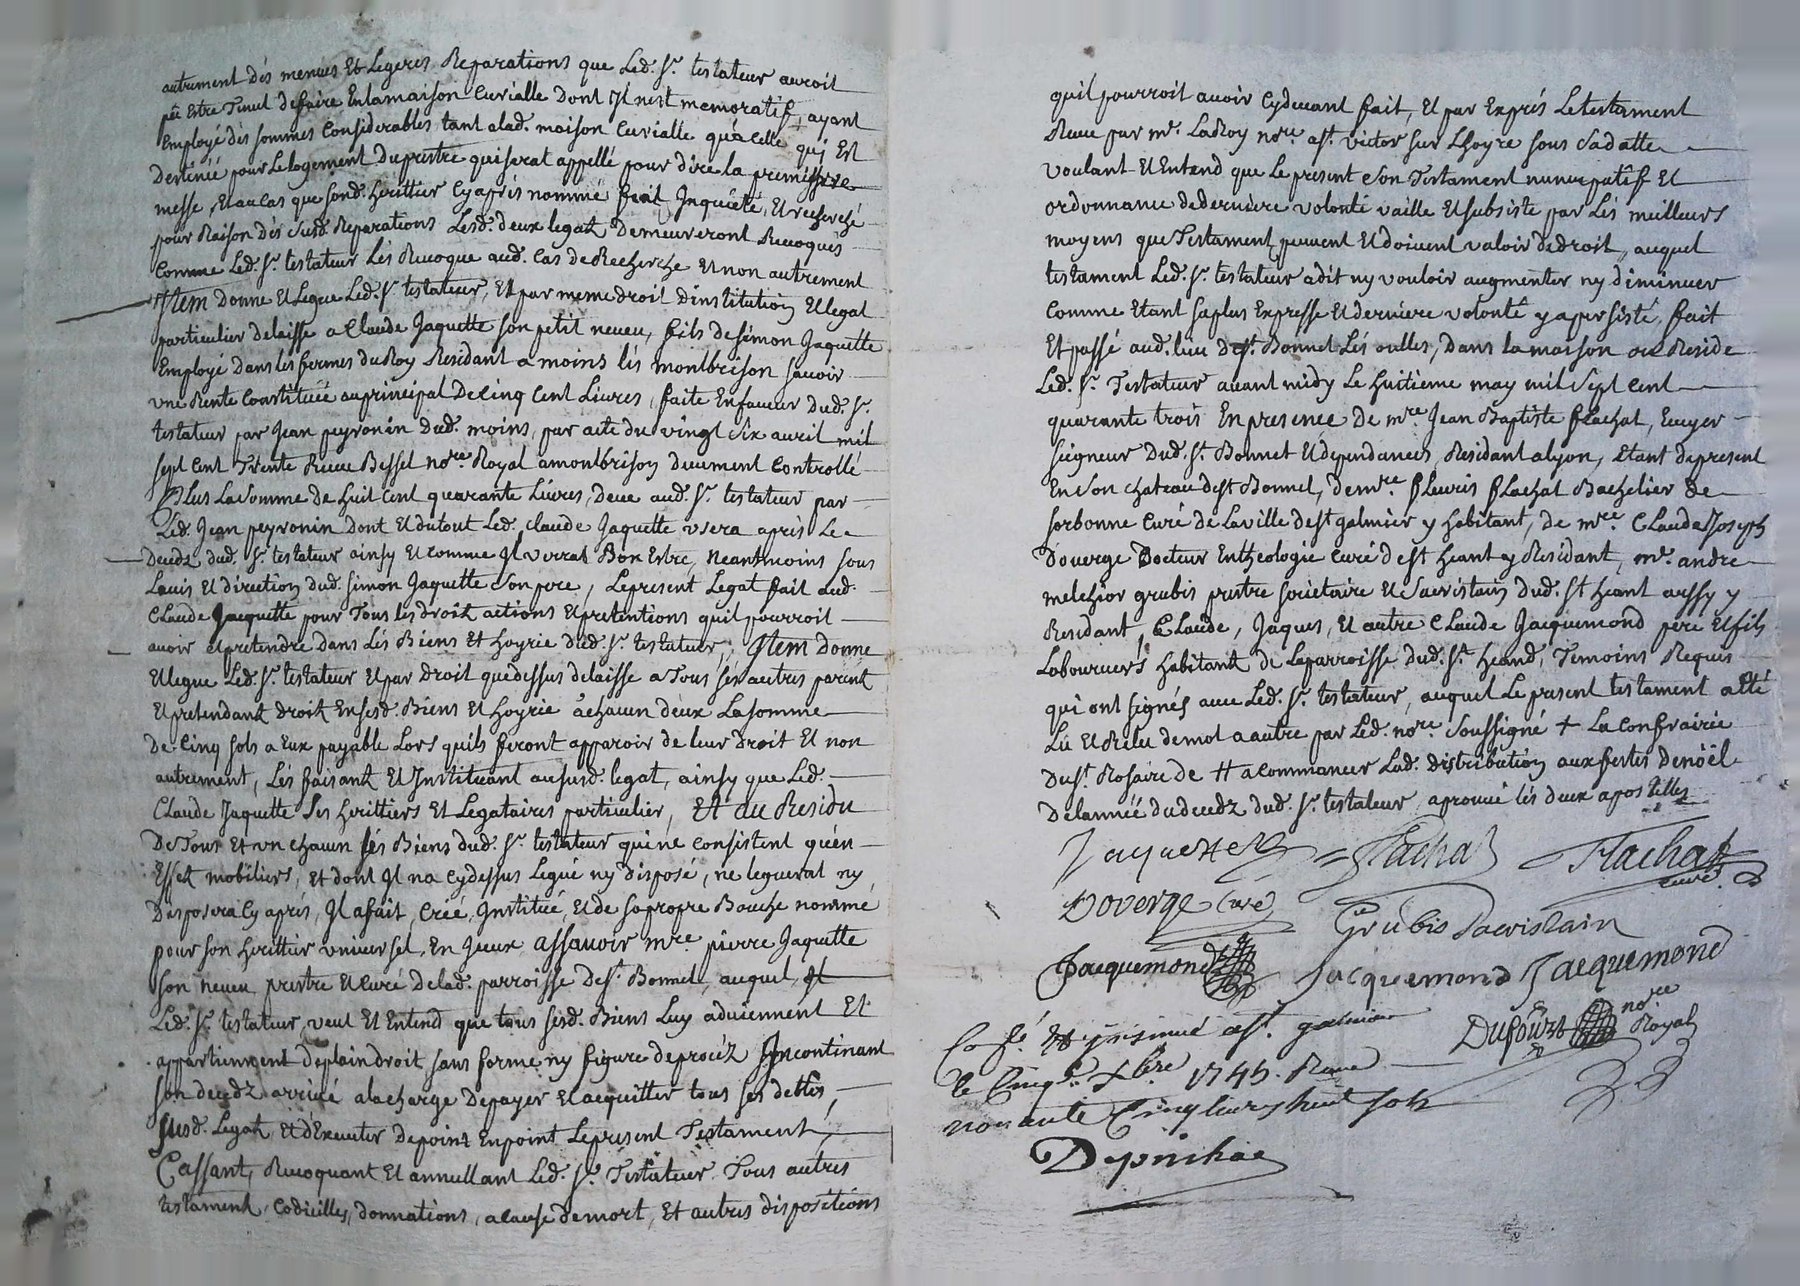 autrement dés menues Et Legeres Reparations que Led. Sr. testateur auroit
pû Estre Tenut defaire Enlamaison Curialle Dont Jl nest memoratif, ayant
Employé des sommes Considerables tant alad. maison Curialle qu'a celle quj Est
Destinée pour Lelogement Duprestre quiserat appellé pour dire la premiere
messe, Et aucas que sond. herittier Cyaprés nommé fut Jnquiété, Et recherché
pour Raison dés susd. Reparations Lesd. deux legatz Demeureront Revoqués
Comme Led. Sr. testateur Lés Revoque aud. Cas deRecherche Et non autrement
Jtem Donne Et Legue Led. Sr testateur, Et par meme droit d'institution Et legat
particulier delaisse a Claude Jaquette son petit neveu, fils de simon Jaquette
Employé Dans les fermes du Roy Residant a moins lés montbrison savoir
vne Rente Constituée auprincipal De Cinq Cent Livres, faite Enfaveur dud. Sr.
testateur par Jean peyronin dud. moins, par acte du vingt six avril mil
sept Cent Trente Receu Bessel nore. Royal amontbrison duement Controllé
Plus La somme de huit Cent quarante Livres, deüe aud. Sr. testateur par
Led. Jean peyronin dont Et dutout Led. Claude Jaquette vsera aprés Le
Decedz dud. Sr. testateur ainsy Et comme Jl verrat Bon Estre, Neantmoins sous
Lavis Et direction dud. simon Jaquette son pere, Lepresent Legat fait aud.
Claude Jaquette pour Tous les droitz actions Et pretentions quil pourroit
avoir Et pretendre dans Lés Biens Et hoyrie dud. Sr. testateur, Jtem donne
Et legue Led. Sr. testateur Et par droit quedessus delaisse a Tous sés autres parentz
Et pretendantz droitz Ensesd. Biens Et hoyrie a chacun deux La somme
De Cinq sols a Eux payable Lors quils feront apparoir de leur droit Et non
autrement, Lés faisantz Et Jnstituant ausurd. legat, ainsy que Led.
Claude Jaquette ses herittiers Et Legataires particulier, Et du Residu
De Tous Et vn chacun sés Biens dud. Sr. testateur qui ne consistent qu'en
Effetz mobiliers, Et dont Jl na Cydessus Legué ny disposé, ne leguerat ny
Disposera Cy aprés, Jl a fait, Créé, Jnstitué, Et de sa propre Bouche nommé
pour son herittier vniversel, En Jceux assavoir mre pierre Jaquette
son neveu prestre Et Curé delad. parroisse de St. Bonnet, auquel
Led. Sr. testateur, veut Et Entend que tous sesd. Biens Luy adviennent Et
appartiennent deplain droit, sans forme ny figure deprocéz Jncontinant
son decedz arrivé alacharge Depayer Et acquitter tous ses debtes,
susd. Legatz, Et dExecuter Depoint Enpoint Lepresent Testament,
Cassant, Revoquant Et annullant Led. Sr. Testateur Tous autres
testament, Codicilles, donnations, acause demort, Et autres dispositions
quil pourroit avoir Cydevant fait, Et par Exprés Letestament
Receu par mr. LaRoy nore. a St. victor sur Lhoyre sous sadatte
voulant Et Entend que Le present son Testament nuncupatif Et
ordonnance dederniere volonté vaille Et subsiste par Lés meilleurs
moyens que Testament peuvent Et doivent valoir dedroit, auquel
testament Led. Sr. testateur adit ny vouloir augmenter ny diminuer
Comme Etant saplus Expresse Et derniere volonté y apersisté, fait
Et passé aud. lieu de St. Bonnet Lés oulles, Dans lamaison ou Reside
Led. Sr. Testateur avant midy Le huitieme may mil Sept Cent
quarante trois En presence De mre. Jean Baptiste flachat, Ecuyer
seigneur dud. St. Bonnet Et dependances, Residant alyon, Etant depresent
Enson chateau de st Bonnet, de mre fleuris flachat Bachelier de
sorbonne Curé de Laville de st galmier y habitant, de mre. Claude Joseph
Doverge Docteur Entheologie Curé d est heant y Residant, mr. andre
melchior grubis prestre societaire Et sacristain dud. St heant aussy y
Residant, Claude, Jaques, Et autre Claude Jacquemond pere Et fils
Laboureurs habitantz de Laparroisse dud. St. heand, Temoins Requis
qui ont signés avec Led. Sr. testateur, auquel Le present testament aété
Lû Et Relu demot a autre par Led. nore. soussigné + La Confrairie
du St. Rosaire de # acommancer Lad. distribution aux festes denoël
Delannée dudecedz dud. Sr. testateur, aprouvé lés deux apostilles
Jaquette
Flachat
Flachat
curé
Doverge Curé
Grubis Sacristain
Jacquemond
Jacquemond
Jacquemond
Dufour nore Royal
Co lé. Et jnsinué a St. galmier
le Cinq Xbre 1745. Receu
nonante Cinq livres huit sols